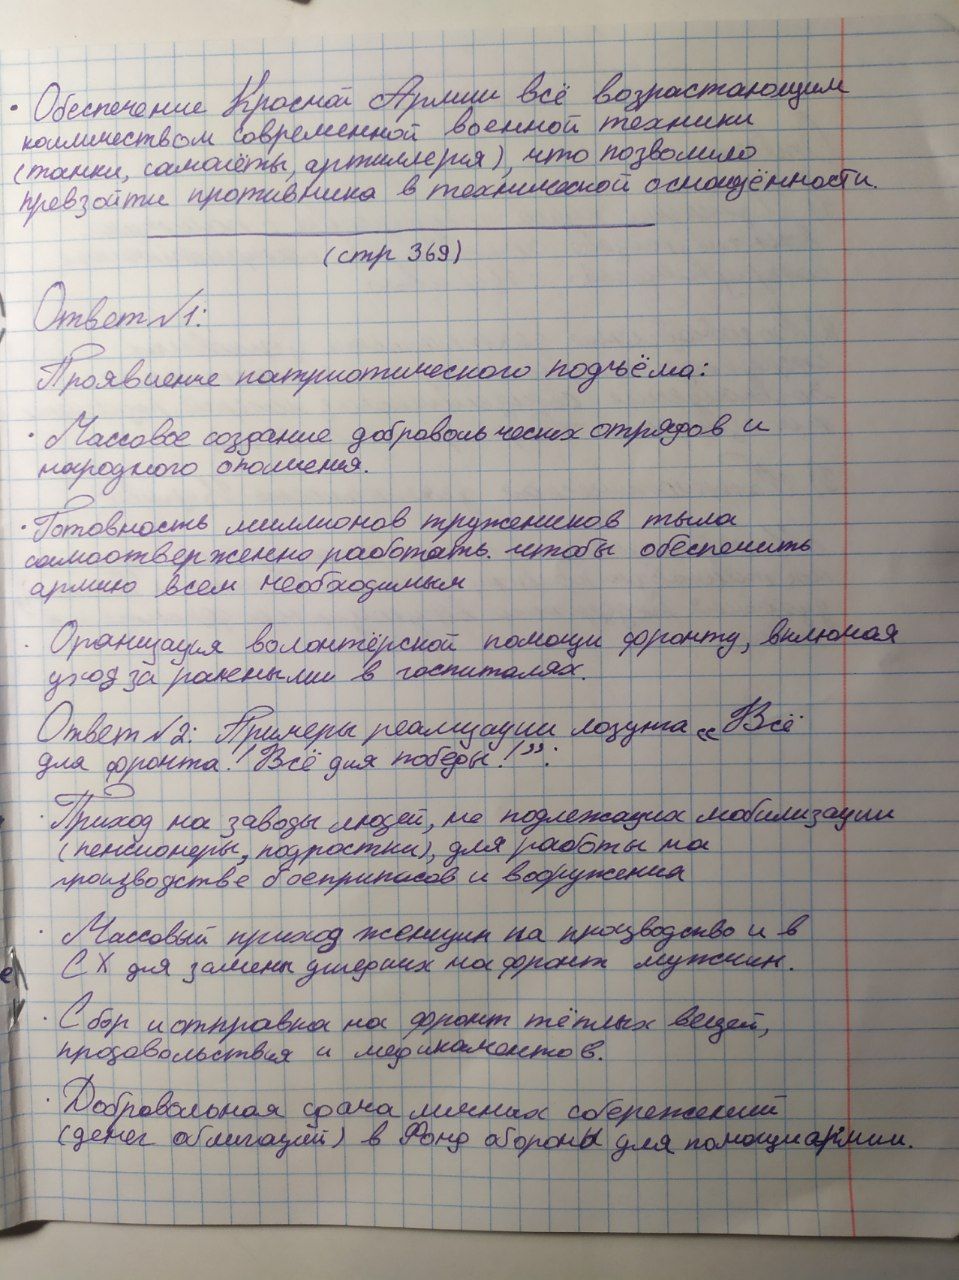 • Обеспечение Красной Армии всё возрастающим
количеством современной военной техники
(танки, самолёты, артиллерия), что позволило
превзойти противника в технической оснащённости.
(стр 369)
Ответ №1:
Проявление патриотического подъёма:
• Массовое создание добровольческих отрядов и
народного ополчения.
• Готовность миллионов тружеников тыла
самоотверженно работать. чтобы обеспечить
армию всем необходимым
• Организация волонтёрской помощи фронту, включая
уход за ранеными в госпиталях.
Ответ №2: Примеры реализации лозунга "Всё
для фронта! Всё для победы!":
• Приход на заводы людей, не подлежащих мобилизации
(пенсионеры, подростки), для работы на
производстве боеприпасов и вооружения
• Массовый приход женщин на производство и в
СХ для замены ушедших на фронт мужчин.
• Сбор и отправка на фронт тёплых вещей,
продовольствия и медикаментов.
• Добровольная сдача личных сбережений
(денег облигаций) в Фонд обороны для помощи армии.